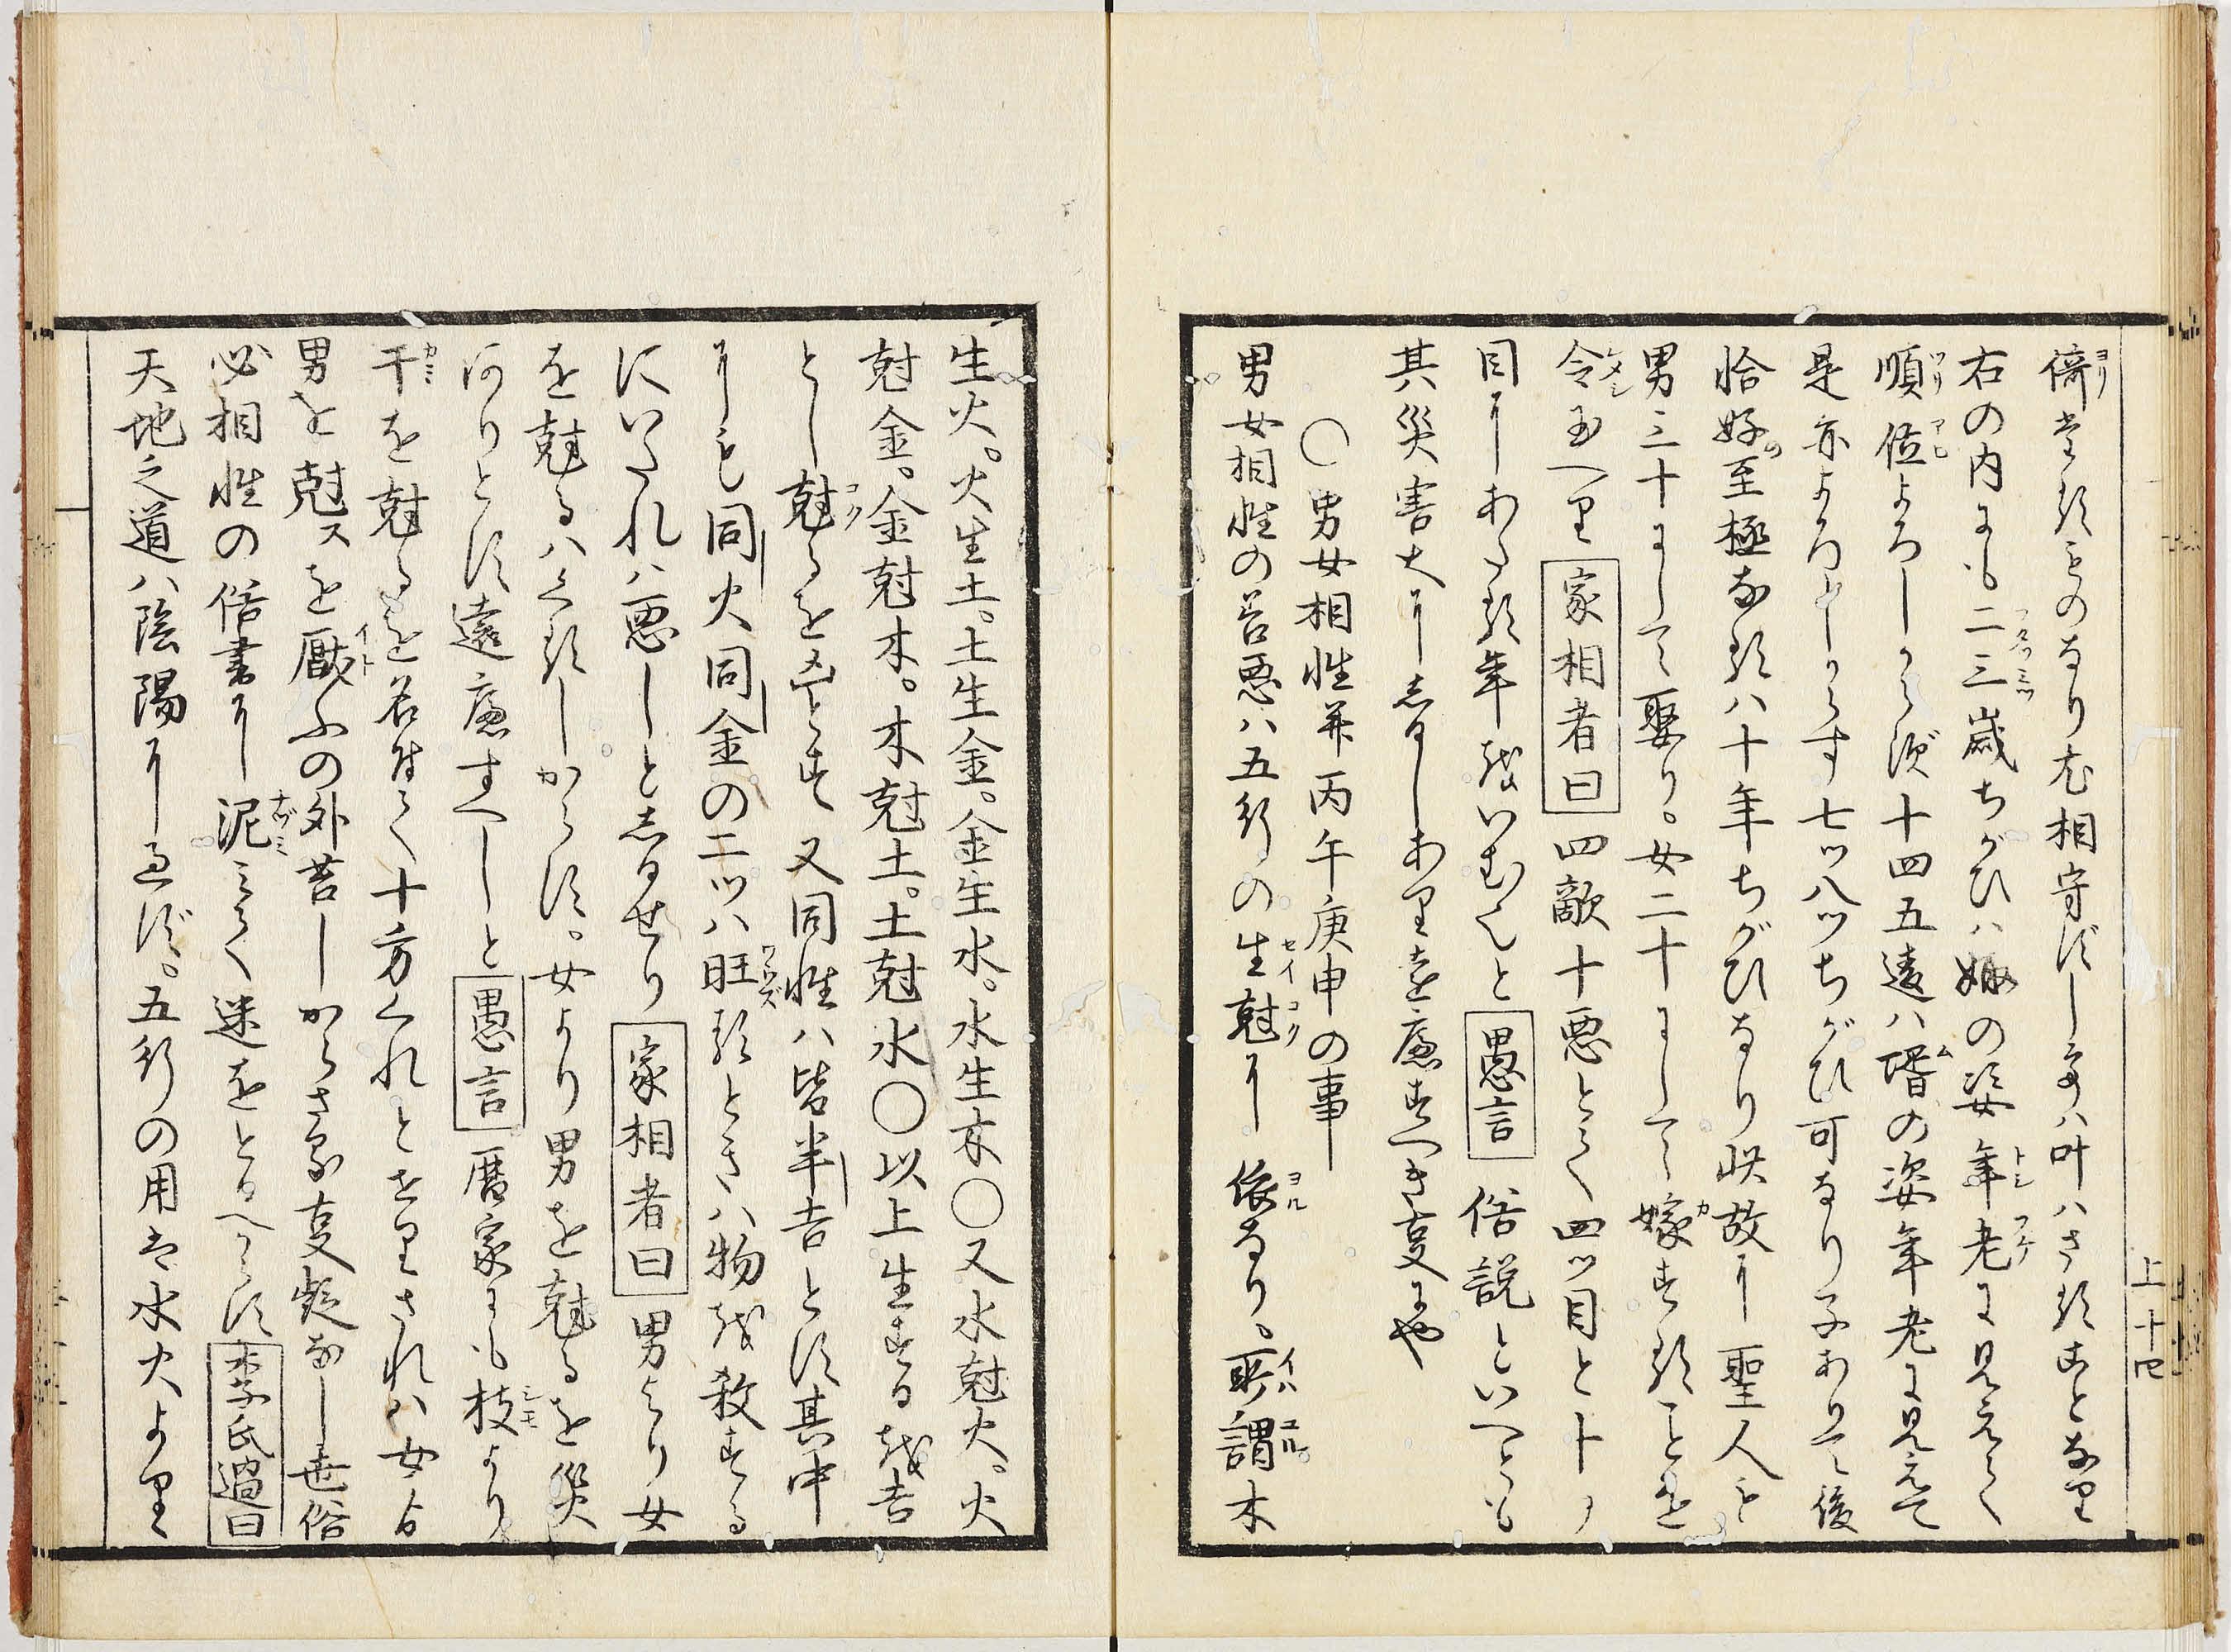 倚べきものなり尤相守ずして不叶ハさることなり
右の内にも二三歳ちがひハ婦の姿年老に見えて
順位よろしからず十四五違ハ壻の姿年老に見えて
是亦よろしからす七ツ八ツちがひ可なり子ありて後
恰好の至極なるハ十年ちがひなり此故に聖人も
男三十にして娶り。女二十にして嫁することを
令玉へり 家相者曰 四敵十悪とて四ツ目と十ヲ
目にあたる年をいむへしと 愚言 俗説といへとも
其災害大にしるしあり遠慮すへき事にや
○男女相性并丙午庚申の事
男女相性の善悪ハ五行の生尅に依なり。所謂木
上十四
生火。火生土。土生金。金生水。水生木○又水尅火。火
尅金。金尅木。木尅土。土尅水○以上生する を吉
とし尅るを凶とす又同性ハ皆半吉とす其中
にも同火同金の二ツハ旺るときハ物を殺する
にいたれハ悪しと志るせり 家相者曰 男より女
を尅るハくるしからす。女より男を尅るを災
ありとす遠慮すへしと 愚言 暦家にも枝より
干を尅るを名付て十方くれとせりされハ女は
男を尅スを厭ふの外苦しからさる事疑なし世俗
必相性の俗書に泥ミて迷をとるへからす 李氏過曰
天地之道ハ陰陽に過ず。五行の用は水火より